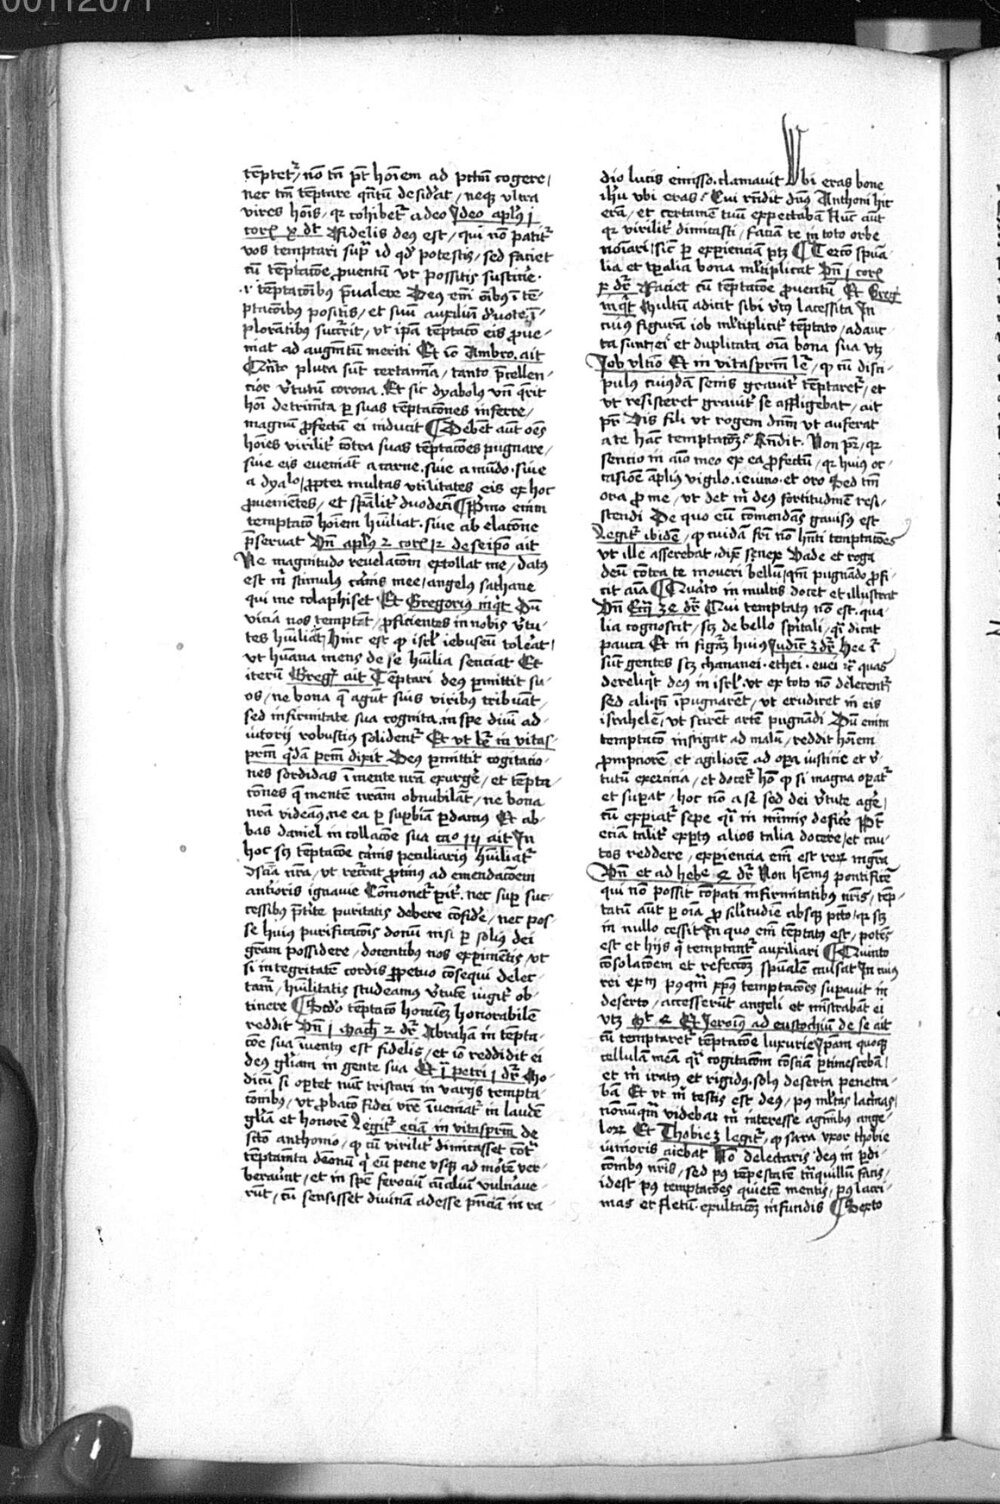 00112071
tēptet᷑ / nō tm̄ pt̄ hoīem ad pctm̄ cogere /
nec tm̄ temptare qn̄tū desiďat / neqȝ vltra
vires hoīs / qr cohibet᷑ a deo Ideo aplūs j
corꝝ x dt̄ Fidelis deꝯ est / qui nō patit᷑
vos temptari supͣ id qď potestis / sed faciet
cū temptacōe ꝓuentū vt possitis sustine᷑ ·
temptacōibꝯ p̄ualere Deꝯ em̄ oībꝯ ī tē
ptacōibꝯ positis / et suū auxiliū
plorantibꝯ succr̄it / vt ipā temptaco eis ꝓue
niat ad augmētū meriti Et iō Ambro. ait
Qn̄to plura sūt certamīa / tanto p̄cellen
cior v̄turū corona . Et sic dyabolꝯ vn̄ qr̄it
hoī detrimēta ꝑ suas temptacōnes inferre /
magnū ꝓfectū ei inducit ¶ Debēt aūt oēs
hoīes virilit᷑ cōtra suas tēptacōes pugnare /
siue eis eueniāt a carne . siue a mūdo . siue
a dyalo / ꝓpter multas vtilitates eis ex hoc
ꝓuenientes / et spālit᷑ duodecī ¶ Primo enim
temptaco hoīem hūiliat . siue ab elacōne
p̄seruat Vn̄ aplꝯ 2 corꝝ 12 de seipō ait
Ne magnitudo reuelacōm extollat me / datꝯ
est m̄ stimulꝯ carnis mee / angelꝯ sathane
qui me colaphiset Et Gregoriꝯ inqͥt Dū
vicia nos temptāt / ꝓficientes in nobis v̄tu
tes hūiliāt / Hinc est ꝙ isrl̄ iebuseū tolerat /
vt hūana mens de se hūilia senciat Et
iterū Greg᷑ ait Temptari deꝯ ꝑmittit su
os / ne bona q̄ agūt suis viribꝯ tribuāt /
sed infirmitate sua cognita . in spe diuī ad
iutorij robustiꝯ solident᷑ Et vt lr̄ in vitas
prm̄ qͥdā prm̄ dixit Deꝯ ꝑmittit cogitacio
nes sordidas ī mente nrā exurge᷑ / et tēpta
cōnes q̄ mentē nrām obnubilāt / ne bona
nrā videāꝯ . ne ea ꝑ suꝑbiā ꝑdamꝯ Et ab
bas daniel in collacōe sua caº iiij ait In
hoc sꝫ temptacōe carnis peculiariꝯ hūiliat᷑
ꝯsciā nrā / vt retrat ꝓtinꝯ ad emendacōem
anterioris ignauie
cessibꝯ p̄tite puritatis debere cōfide᷑ / nec pos
se huiꝯ purificacōis donū nisi ꝑ solꝯ dei
grām possidere / docentibꝯ nos exꝑimētis / vt
si integritatē cordis ꝑpetuo cōsequi delec
tam᷑ / hūilitatis studeamꝯ v̄tute iugit᷑ ob
tinere ¶ Scdō temptaco hominē honorabilē
reddit Vn̄ j Mach 2 dr̄ Abrahā in tempta
cōe sua īuentꝯ est fidelis / et iō reddidit ei
deꝯ gl̄iam in gente sua Et j petri j dr̄ Mo
dicū si oportet nūc tristari in varijs tempta
cōnibꝯ / vt ꝓbacō fidei vrē īueniat᷑ in laudē
gl̄iā et honorē Legit᷑ eciā in vitasprm̄ de
scto anthonio / ꝙ cū virilit᷑ dimicasset cōt᷑
temptamēta demonū qͥ eū pene vsqȝ ad mortē ver
berauīt / et in spē ferociū aīaliū vulnaue
rūt / cū sensisset diuinā adesse p̄nciā in ra
dio lucis emisso . clamauit Vbi eras bone
ihū vbi eras ? Cui rn̄dit dn̄s Anthoni hic
erā / et certamē tuū expectabā Nūc aūt
qr virilit᷑ dimicasti / faciā te in toto orbe
noīari / sic ꝑ exꝑienciam ptꝫ ¶ Tercō spūa
lia et tꝑalia bona mltiplicat Vn̄ j corꝝ
x dr̄ Faciet cū temptacōe ꝓuentū Et Greg
inqͥt Multū adicit sibi v̄tꝯ lacessita In
cuiꝯ figuram iob mltiplicit᷑ temptato / adauc
ta sunt ei et duplicata oīa bona sua vtꝫ
Job vltiō Et in vitasprm̄ lr̄ / ꝙ cū disci
pulꝯ cuiꝰdā senis grauit᷑ temptaret᷑ / et
vt resisteret grauit᷑ se affligebat / ait
pr̄ Vis fili vt rogem dn̄m vt auferat
a te hāc temptacōꝫ ? Rn̄dit . Non pr̄ / qr
sencio in aīo meo ex ea ꝓfectū / qr huiꝯ oc
casiōe ampliꝯ vigilo . ieiuno . et oro Sed tm̄
ora ꝓ me / vt det m̄ deꝯ fortitudinē resi
stendi De quo eū cōmendās gauisꝯ est
Legit᷑ ibidē / ꝙ cuidā frī nō hn̄ti temptacōes
vt ille asserebat . dix̄ senex Vade et roga
deū cōtra te moueri bellū / qm̄ pugnādo ꝓfi
cit aīa ¶ Quarto in multis docet et illustrat
Vn̄ Ecci 34 dr̄ Qui temptatꝯ nō est . qua
lia cognoscit / scꝫ de bello spīrtali / qͥ dicat
pauca Et in figͣm huiꝯ Judic 3 dr̄ Hee
sūt gentes scꝫ chananei . ethei . euei rc̄ quas
dereliqͥt deꝯ in isrl̄ . vt ex toto nō delerent᷑
sed aliqn̄ īpugnarēt / vt erudiret in eis
israhelē / vt scirēt artē pugnādi Dū enim
temptacō instigat ad malū / reddit hoīem
ꝓmpciorē / et agiliorē ad oꝑa iusticie et v̄
tutū exercicia / et docet᷑ hō ꝙ si magna oꝑat᷑
et suꝑat / hoc nō a se sed dei v̄tute age᷑ /
cū exꝑiat᷑ sepe qͥ in minimis defice᷑ Pt̄
eciam talit᷑ exꝑtꝯ alios talia docere / et cau
tos reddere / exꝑiencia em̄ est reꝝ mgrā
Vn̄ et ad hebr 4 dr̄ Non hēmꝯ pontificē
qui nō possit cōpati infirmitatibꝯ nrīs / tēp
tatū aūt ꝑ oīa ꝓ silitudīe absqȝ pctō / ꝙ scꝫ
in nullo cessit In quo em̄ temptatꝯ est / potēs
est et hijs qͥ temptant᷑ auxiliari ¶ Quinto
cōsolacōem et refectōꝫ spūalē causat In cuiꝯ
rei exm̄ pꝰqͣm xp̄ꝯ temptacōes suꝑauit in
deserto / accesserūt angeli et mīstrabāt ei
vtꝫ Mt 4 Et Jeroīꝯ ad eustochiū de se ait
cū temptaret᷑ temptacōe luxurie / Ipam quoqȝ
cellulam meā qͥ cogitacōm cōsciā ꝑtimescebā /
et m̄ iratꝯ et rigidꝯ . solꝯ deserta penetra
bā Et vt m̄ testis est deꝯ / pꝯ ml̄tas lacrīas /
nōnūqͣm videbar m̄ interesse agmībꝯ ange
loꝝ Et Thobie 3 legit᷑ / ꝙ sara vxor thobie
iunioris aiebat Nō delectaris deꝯ in ꝑdi
cōnibꝯ nrīs / sed pꝯ tempestatē tͣnquillū facis /
idest pꝯ temptacōes quietē mentis / pꝯ lacri
mas et fletū . exultacōꝫ infundis ¶ Sexto